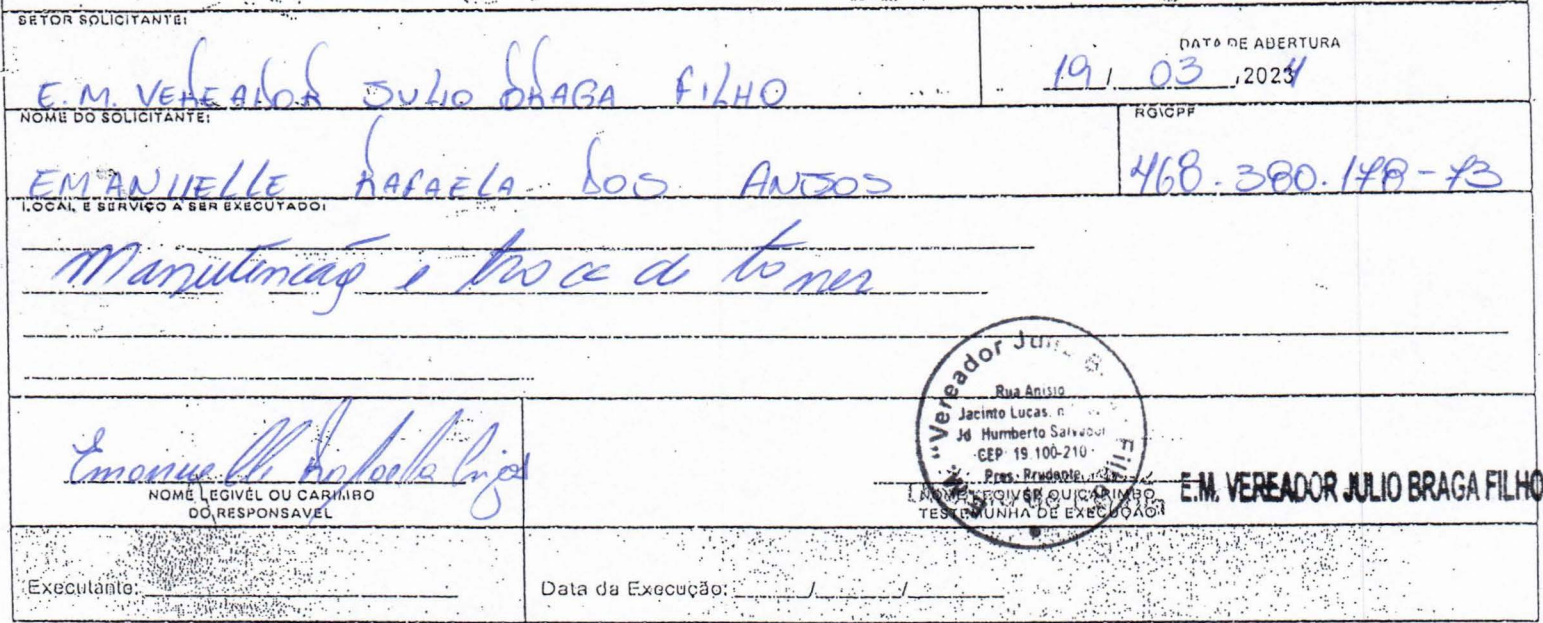 SETOR SOLICITANTE:
E.M. VEREADOR JULIO BRAGA FILHO
DATA DE ABERTURA
19 / 03 / 2024
NOME DO SOLICITANTE:
EMANUELLE RAFAELA DOS ANJOS
RG\CPF
468.380.178-73
LOCAL E SERVIÇO A SER EXECUTADO:
Manutenção e troca de toner
Emanuelle Rafaela Anjos
NOME LEGIVÉL OU CARIMBO
DO RESPONSAVEL
EM "Vereador Julio B. Filho
Rua Anisio
Jacinto Lucas, n
Jd Humberto Salvador
CEP 19.100-210
Pres. Prudente
SP
NOME LEGIVÉL OU CARIMBO
TESTEMUNHA DE EXECUÇÃO
E.M. VEREADOR JULIO BRAGA FILHO
Executante:
Data da Execução: / /